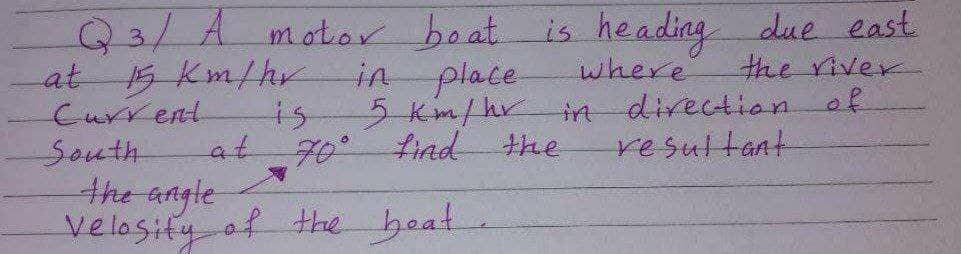 Q3/ A motor boat is heading due east
at 15 Km/hr in place where the river
Current is 5 Km/hr in direction of
South at 70° find the resultant
the angle
Velosity of the boat.